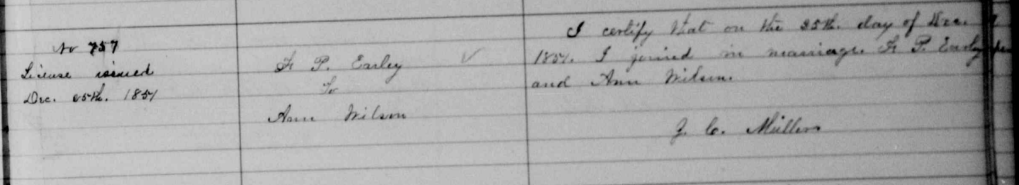 No 757
License issued
Dec. 25th. 1851
F P. Earley
To
Ann Wilson
I certify that on the 25th. day of Dec.
1851. I joined in marriage F P. Earley
and Ann Wilson.
J. C. Mullers